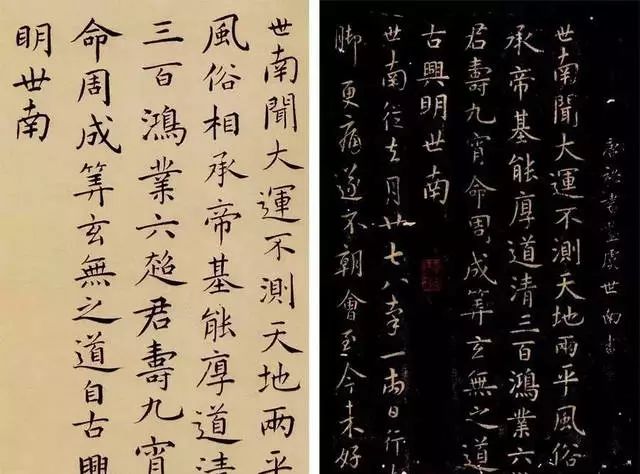 世南聞大運不測天地兩平
風俗相承帝基能厚道清
三百鴻業六超君壽九霄
命周成筭玄無之道自古興
明世南
唐秘書監虞世南書
世南聞大運不測天地兩平風俗
承帝基能厚道清三百鴻業六
君壽九霄命周成筭玄無之道
古興明世南
世南從去月廿七八率一兩日行
脚更痛遂不朝會至今未好